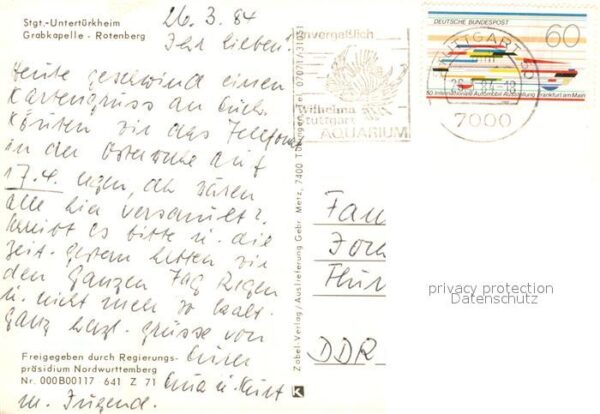 Stgt.-Untertürkheim
Grabkapelle - Rotenberg
26.3.84
Ihr Lieben!
Heute geschwind einen
Kartengruss an Euch.
Könnten wir das Telefonat
in der Osterwoche auf
17.4. legen, da wären
alle hier versammelt?
Schreibt es bitte in die
Zeit. Gestern hatten wir
den ganzen Tag Regen
u. nicht mehr so kalt.
Ganz herzl. Grüsse von
Eurer
u.
m. Jugend.
Freigegeben durch Regierungs-
präsidium Nordwürttemberg
Nr. 000B00117 641 Z 71
Zobel-Verlag/Auslieferung Gebr. Metz, 7400 Tübingen, Tel. 07071/31051
K
unvergeßlich
Wilhelma
Stuttgart
AQUARIUM
STUTTGART
26.3.84-18
7000
DEUTSCHE BUNDESPOST
60
50. Internationale Automobil-Ausstellung Frankfurt am Main
Fam
Joch
Flur
DDR
privacy protection
Datenschutz